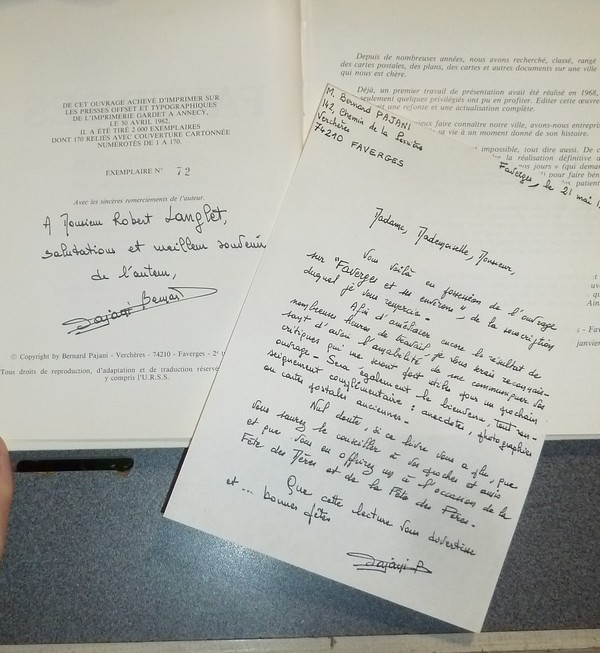 DE CET OUVRAGE ACHEVÉ D'IMPRIMER SUR
LES PRESSES OFFSET ET TYPOGRAPHIQUES
DE L'IMPRIMERIE GARDET A ANNECY,
LE 30 AVRIL 1982,
IL A ÉTÉ TIRÉ 2 000 EXEMPLAIRES
DONT 170 RELIÉS AVEC COUVERTURE CARTONNÉE
NUMÉROTÉS DE 1 A 170.
EXEMPLAIRE N° 72
Avec les sincères remerciements de l'auteur.
A Monsieur Robert Langlet,
salutations et meilleur souvenir
de l'auteur,
Pajani Bernard
© Copyright by Bernard Pajani - Verchères - 74210 - Faverges - 2e
Tous droits de reproduction, d'adaptation et de traduction réservés
y compris l'U.R.S.S.
Depuis de nombreuses années, nous avons recherché, classé, rangé
des cartes postales, des plans, des cartes et autres documents sur une ville
qui nous est chère.
Déjà, un premier travail de présentation avait été réalisé en 1968,
seulement quelques privilégiés ont pu en profiter. Editer cette œuvre
it une refonte et une actualisation complète.
mieux faire connaître notre ville, avons-nous entrepris
sa vie à un moment donné de son histoire.
impossible, tout dire aussi. De
la réalisation définitive
nos jours » (qui
pour faire
patient
M. Bernard PAJANI
142, Chemin de la
Verchères
74210 FAVERGES
Faverges, le 21 mai
Madame, Mademoiselle, Monsieur,
Vous voilà en possession de l'ouvrage
sur "Faverges et ses environs", de la souscription
duquel je vous remercie.
Afin d'améliorer encore le résultat de
nombreuses heures de travail, je vous serais reconnais-
sant d'avoir l'amabilité de me communiquer vos
critiques qui me seront fort utiles pour un prochain
ouvrage - Sera également le bienvenu, tout ren-
seignement complémentaire : anecdotes, photographies
ou cartes postales anciennes -
Nul doute, si ce livre vous a plu, que
vous saurez le conseiller à vos proches et amis
et que vous en offrirez un à l'occasion de la
Fête des Mères et de la Fête des Pères -
Que cette lecture vous divertisse
et ... bonnes fêtes
Pajani B
- Fav
janvier